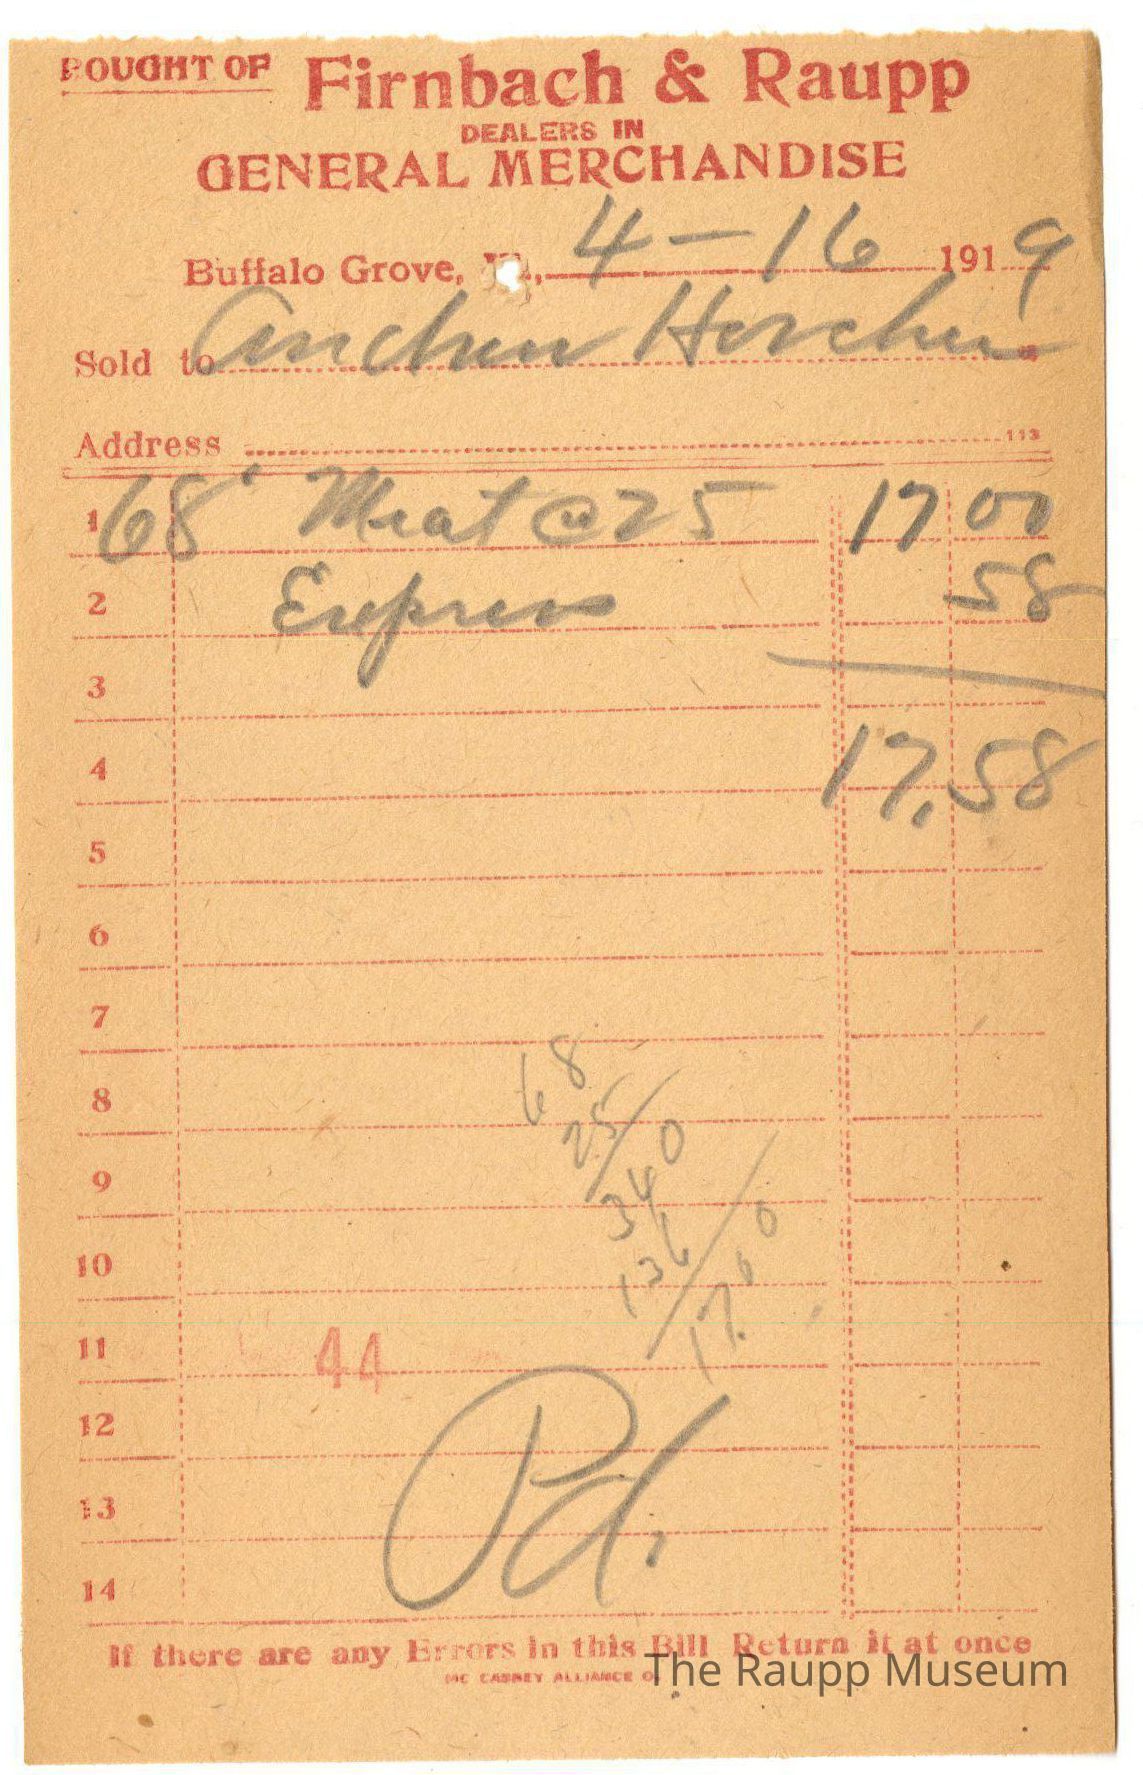 BOUGHT OF Firnbach & Raupp
DEALERS IN
GENERAL MERCHANDISE
Buffalo Grove, 4-16 1919
Sold to Andrew Horcher
Address 113
1 68' Meat @ 25 17 00
2 Express 58
3
4 17.58
5
6
7
68
8
25/0
9
340
136/0
10
17.00
11 44
12
Pd.
13
14
If there are any Errors in this Bill Return it at once
MC CASKEY ALLIANCE O.
The Raupp Museum